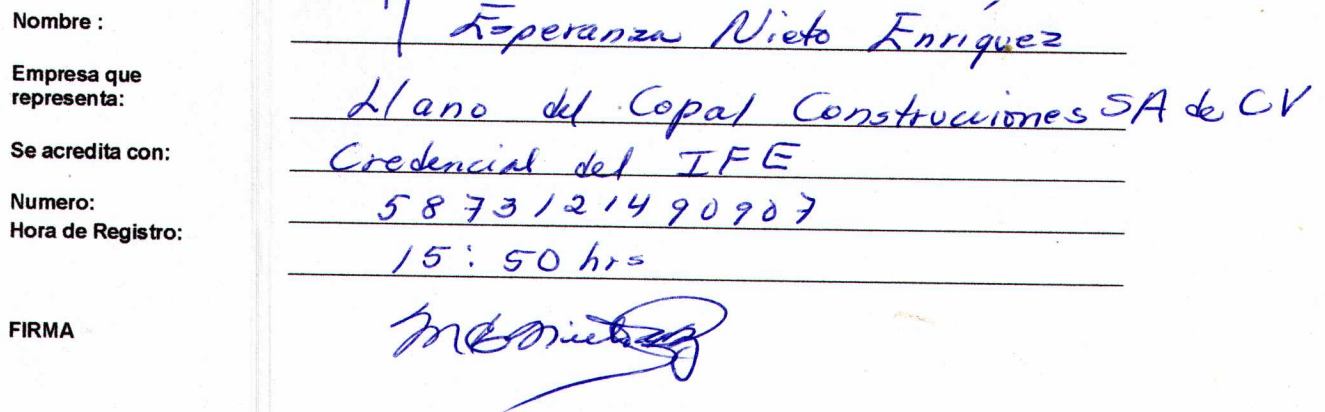 Nombre : Esperanza Nieto Enriquez
Empresa que
representa: Llano del Copal Construcciones SA de CV
Se acredita con: Credencial del IFE
Numero: 5873121490907
Hora de Registro: 15:50 hrs
FIRMA